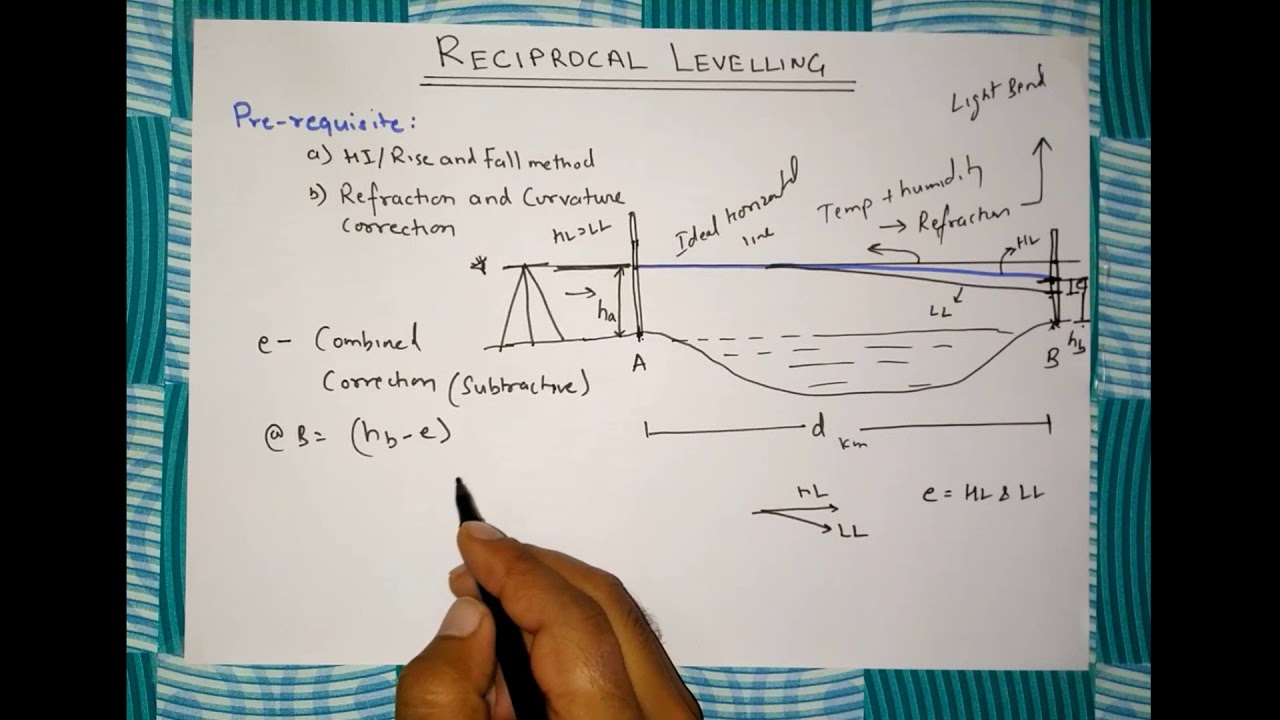 RECIPROCAL LEVELLING
Pre-requisite:
a) HI/Rise and Fall method
b) Refraction and Curvature
correction
HL=LL
Ideal horizontal
line
Temp + humidity
→ Refraction
Light Bend
HL
LL
ha
hb
A
B
e
d
km
e - Combined
Correction (Subtractive)
@ B = (hb-e)
HL
LL
e = HL & LL